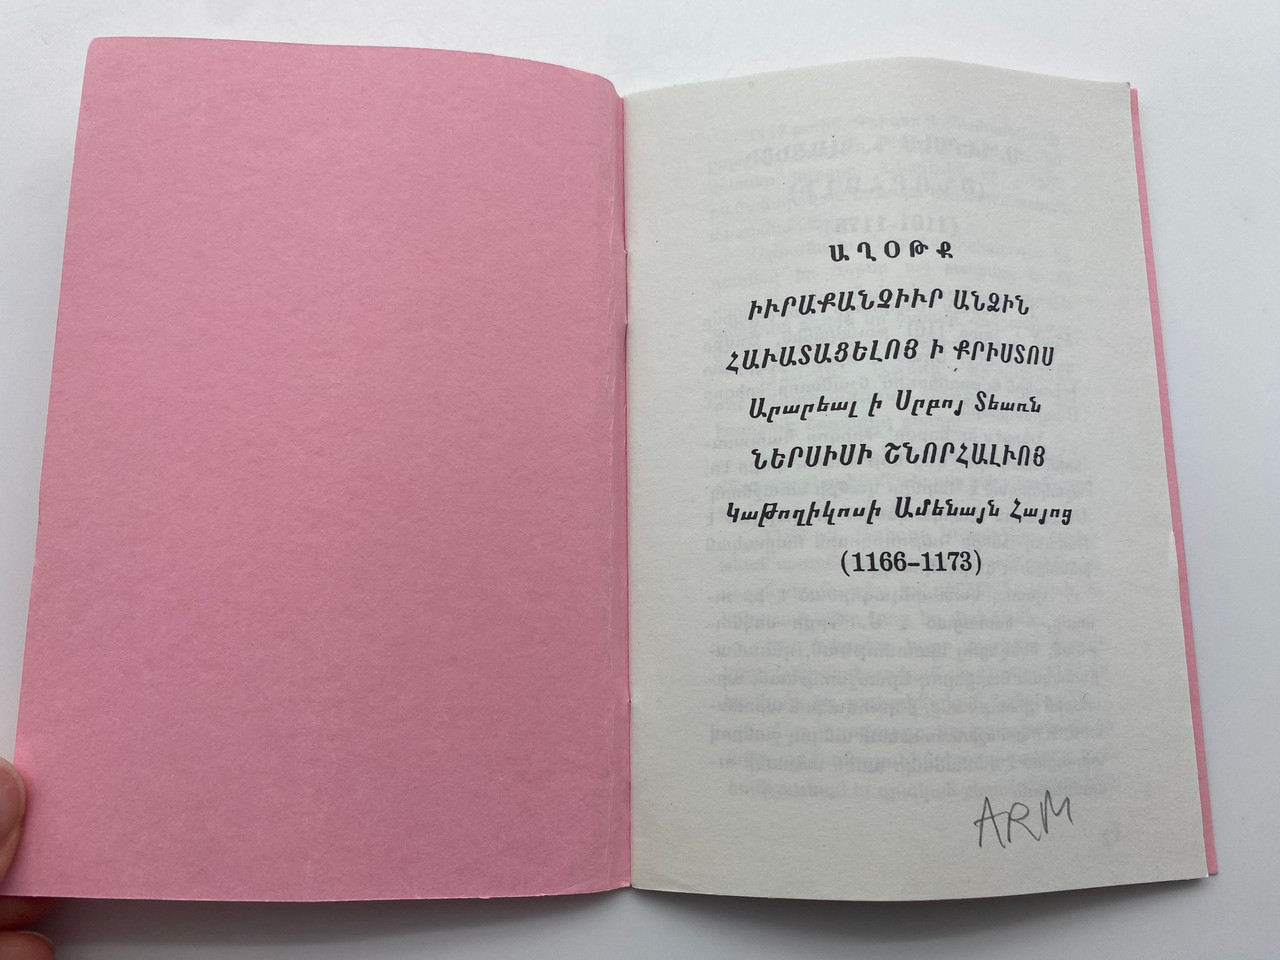 ԱՂՕԹՔ
ԻՒՐԱՔԱՆՉԻՒՐ ԱՆՁԻՆ
ՀԱՒԱՏԱՑԵԼՈՑ Ի ՔՐԻՍՏՈՍ
Արարեալ ի Սրբոյ Տեառն
ՆԵՐՍԻՍԻ ՇՆՈՐՀԱԼՒՈՑ
Կաթողիկոսի Ամենայն Հայոց
(1166–1173)
ARM